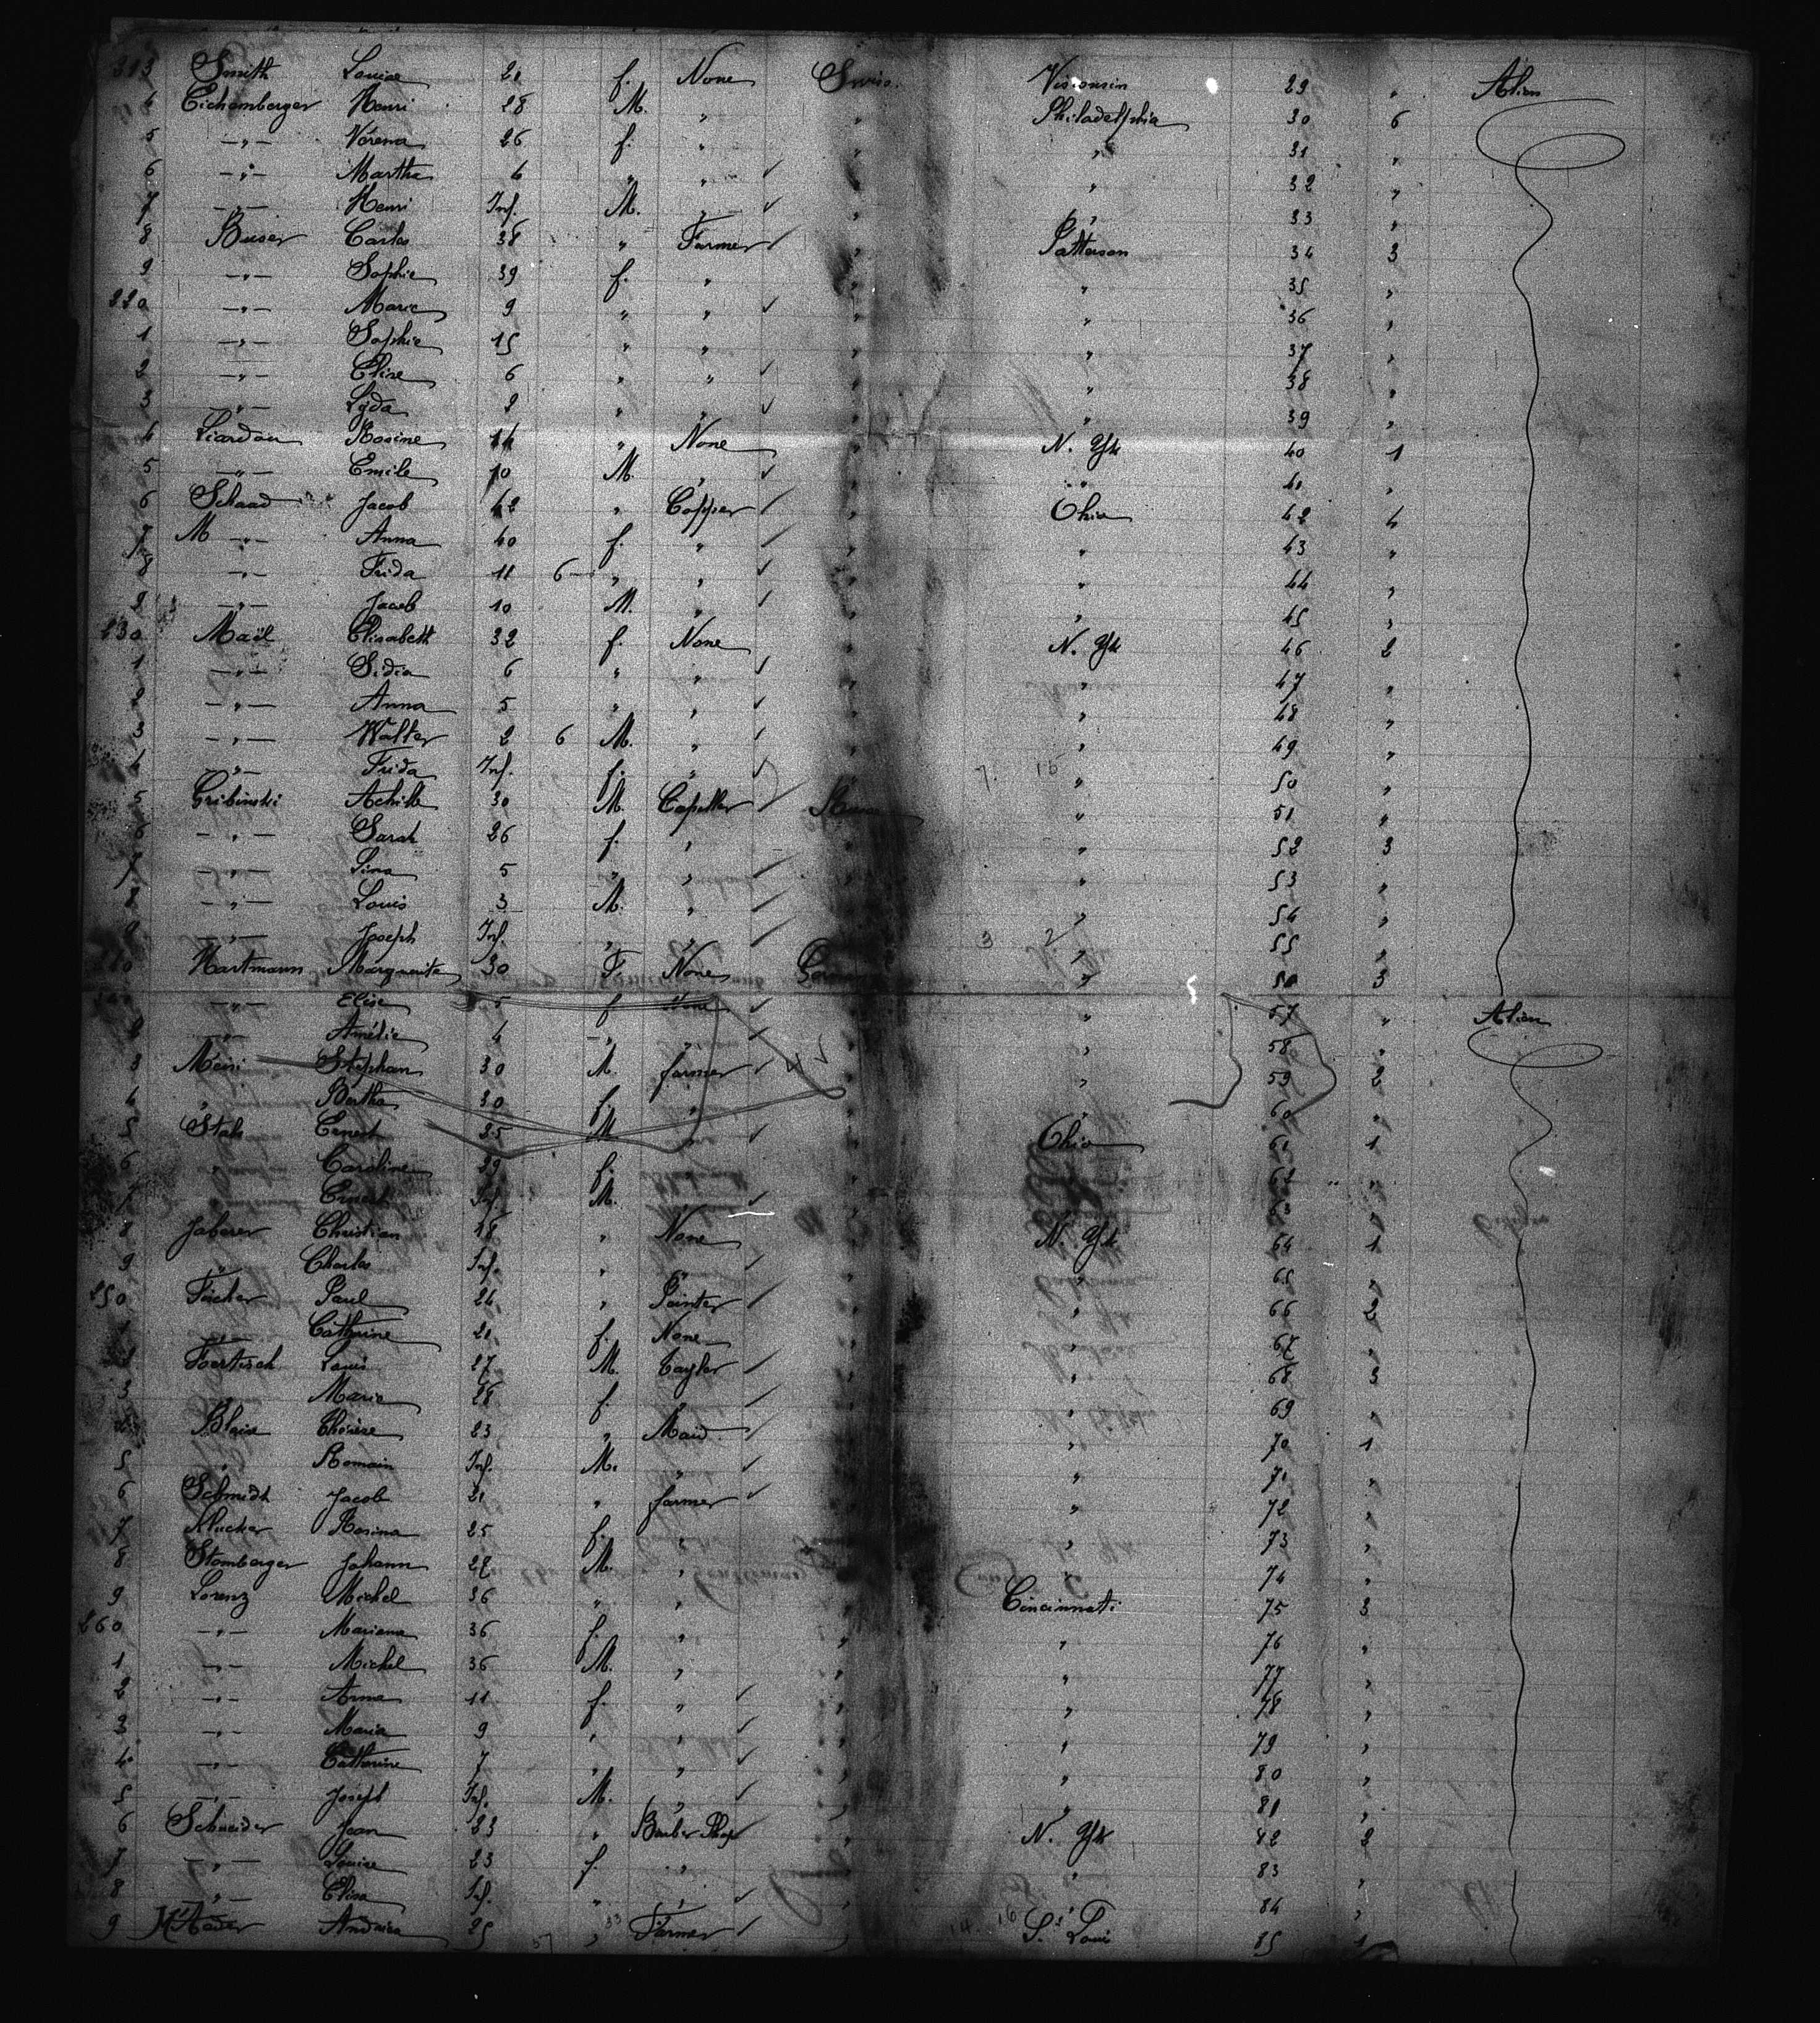 313 Smith Louise 21 f. None Swiss. Visconsin 29 " Alien
4 Eichemberger Henri 28 M. " " Philadelphia 30 6
5 —"— Vérena 26 f. " " " 31 "
6 —"— Martha 4 " " " " 32 "
7 —"— Henri Inf. M. " " " 33 "
8 Buser Carlos 38 " Farmer " Patterson 34 3
9 —"— Sophie 39 f. " " " 35 "
220 —"— Marie 9 " " " " 36 "
1 —"— Sophie 15 " " " " 37 "
2 —"— Elise 6 " " " " 38 "
3 —"— Lyda 2 " " " " 39 "
4 Liardon Rosine 14 " None " N. Yk 40 1
5 —"— Emile 10 M. " " " 41 "
6 Schaad Jacob 42 " Copper " Ohio 42 4
7 M —"— Anna 40 f. " " " 43 "
8 —"— Frida 11 6 " " " " 44 "
9 —"— Jacob 10 M. " " " 45 "
230 Maël Elisabeth 32 f. None " N. Yk 46 2
1 —"— Sidia 6 " " " " 47 "
2 —"— Anna 5 " " " " 48 "
3 —"— Walter 2 6 M. " " " 49 "
4 —"— Frida Inf. f. " " " 50 "
5 Gribinski Achille 30 M. Capeller " 51 "
6 —"— Sarah 26 f. " " " 52 3
7 —"— Lina 5 " " " " 53 "
8 —"— Louis 3 M. " " " 54 "
9 —"— Joseph Inf. " " " " 55 "
240 Hartmann Marguerite 30 F. None " 56 3
—"— Elise 5 f None " " 57 " Alien
2 —"— Amélie 4 —"— " " " 58 "
3 Meïri Stephan 30 M. farmer " " 59 2
4 " Bertha 30 f. " " " 60 "
5 Stah Ernest 25 M. " " Ohio 61 1
6 " Caroline 29 f. " 62 "
7 " Ernest Inf. M. " 63 "
8 Jaberer Christian 18 " None " N. Yk 64 1
9 " Charles Inf. " " " " 65 "
250 Fischer Paul 26 " Painter " " 66 2
1 —"— Catherine 21 f. None " " 67 "
2 Foertisch Louis 27 M. Taylor " " 68 3
3 " Marie 28 f. " " " 69 "
4 Blaise Thérèse 23 " Maid " " 70 1
5 " Romain Inf. M. " " " 71 "
6 Schmidt Jacob 21 " farmer " " 72 "
7 Klucker Rosina 25 f. " " " 73 "
8 Stomberger Johann 27 M. " " " 74 "
9 Lorenz Michel 36 " " " Cincinnati 75 3
260 —"— Mariana 36 f. " " " 76 "
1 —"— Michel 36 M. " " " 77 "
2 —"— Anna 11 f. " " " 78 "
3 —"— Maria 9 " " " " 79 "
4 —"— Catharine 7 " " " " 80 "
5 —"— Joseph Inf. M. " " " 81 "
6 Schneider Jean 23 " Barber Shop " N. Yk 82 2
7 —"— Louise 23 f. " " " 83 "
8 —"— Elisa Inf. " " " " 84 "
9 Farmer " St Louis 85 1